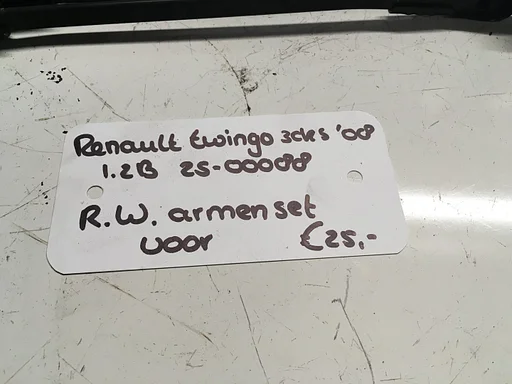 Renault twingo 3drs '08
1.2B 25-00088
R.W. armen set
voor €25,-